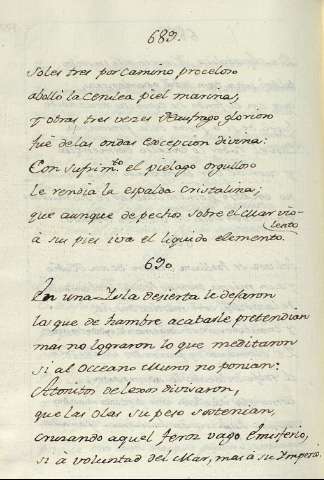 689.
Soles tres por camino proceloso
abolló la Cerulea piel marina;
Y otras tres vezes Naufrago glorioso
fué de las ondas excepcion divina:
Con sufrim.to el pielago orgulloso
le rendia la espalda cristalina;
que aunque de pechos sobre el Mar vio-
lento
á su pies iva el liquido elemento.
690
En una Isla desierta le dejaron
los que de hambre acabasle pretendian
mas no lograron lo que meditaron
si al Occeano Muros no ponian:
Atonitos de lexos divisaron,
que las Olas su peso sostenian,
cruzando aquel feroz vago Emisferio,
si á voluntad del Mar, mas á su Imperio.